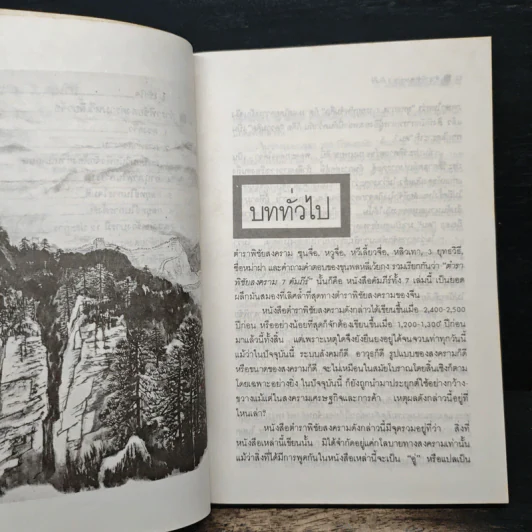 บททั่วไป
ตำราพิชัยสงคราม ซุนจื่อ, หวูจื่อ, หวีเลี้ยวจื่อ, หลิวเทา, 3 ยุทธวิธี,
ซือหม่าฝ่า และคำถามคำตอบของขุนพลหลี่เว่ยกง รวมเรียกกันว่า "ตำรา
พิชัยสงคราม 7 คัมภีร์" นั้นก็คือ หนังสือคัมภีร์ทั้ง 7 เล่มนี้ เป็นยอด
ผลึกมันสมองที่เลิศล้ำที่สุดทางตำราพิชัยสงครามของจีน
หนังสือตำราพิชัยสงครามดังกล่าวได้เขียนขึ้นเมื่อ 2,400-2,500
ปีก่อน หรืออย่างน้อยที่สุดก็จักต้องเขียนขึ้นเมื่อ 1,200-1,300 ปีก่อน
มาแล้วนี้ทั้งสิ้น แต่เพราะเหตุใดจึงยังยืนยงอยู่ได้จนจวบเท่าทุกวันนี้
แม้ว่าในปัจจุบันนี้ ระบบสังคมก็ดี อาวุธก็ดี รูปแบบของสงครามก็ดี
หรือขนาดของสงครามก็ดี จะไม่เหมือนในสมัยโบราณโดยสิ้นเชิงก็ตาม
โดยเฉพาะอย่างยิ่ง ในปัจจุบันนี้ ก็ยังถูกนำมาประยุกต์ใช้อย่างกว้าง
ขวางแม้แต่ในสงครามเศรษฐกิจและการค้า เหตุผลดังกล่าวนี้อยู่ที่
ไหนเล่า?
หนังสือตำราพิชัยสงครามดังกล่าวนี้มีจุดรวมอยู่ที่ว่า สิ่งที่
หนังสือเหล่านี้เขียนนั้น มิได้จำกัดอยู่แค่กโลบายทางสงครามเท่านั้น
แม้ว่าสิ่งที่ได้มีการพูดกันในหนังสือเหล่านี้จะเป็น "อู่" หรือแปลเป็น